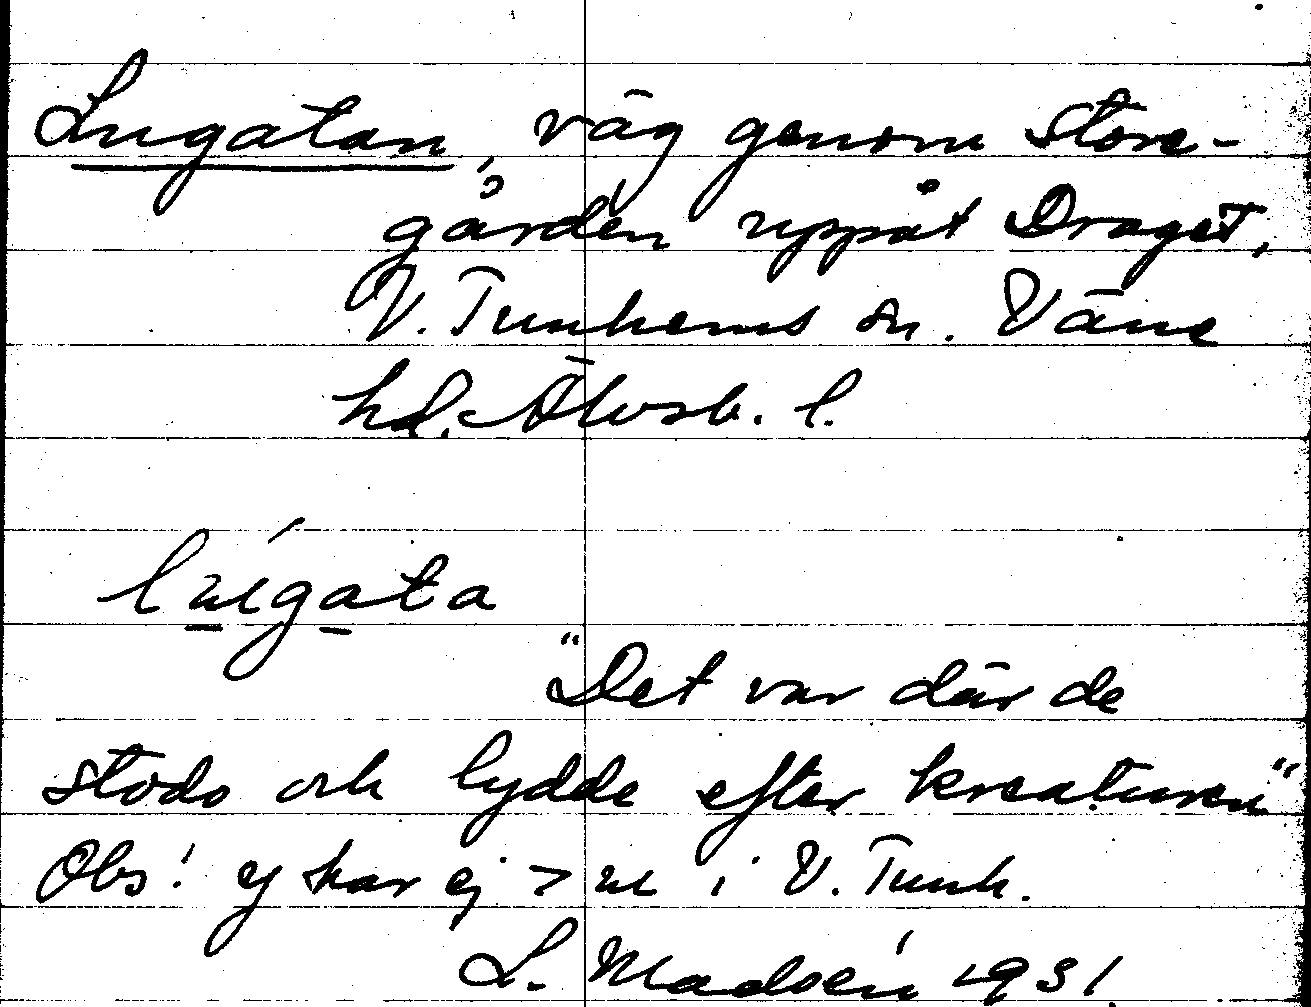 Lugatan, väg genom Store-
gården uppåt Draget,
V. Tunhems sn. Väne
hd. Älvsb. l.
lúgata
"Det var där de
stodo och lydde efter kreaturen"
Obs! y har ej > u i V. Tunh.
L. Madsén 1931.